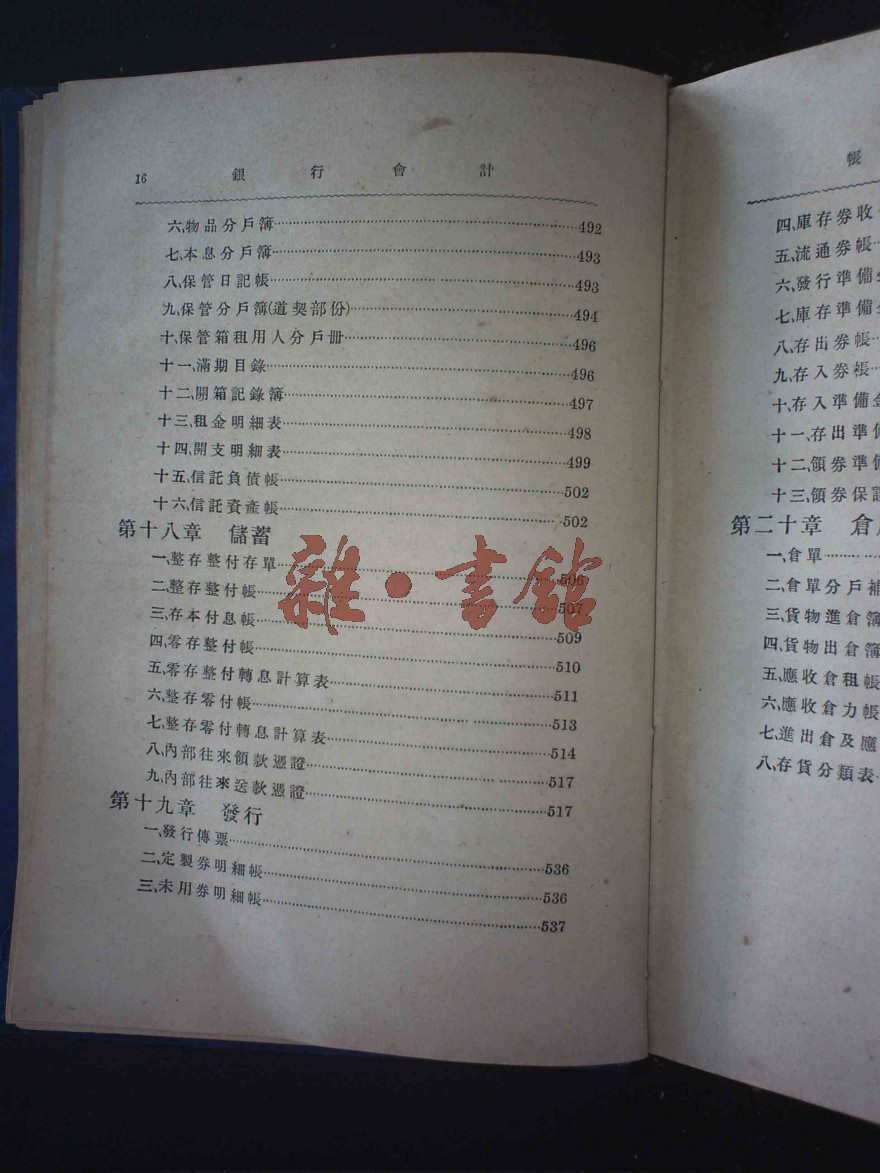 16 銀行會計
六、物品分戶簿……492
七、本息分戶簿……493
八、保管日記帳……493
九、保管分戶簿(道契部份)……494
十、保管箱租用人分戶册……496
十一、滿期目錄……496
十二、開箱記錄簿……497
十三、租金明細表……498
十四、開支明細表……499
十五、信託負債帳……502
十六、信託資產帳……502
第十八章 儲蓄
一、整存整付存單……506
二、整存整付帳……507
三、存本付息帳……509
四、零存整付帳……510
五、零存整付轉息計算表……511
六、整存零付帳……513
七、整存零付轉息計算表……514
八、內部往來領款憑證……517
九、內部往來送款憑證……517
第十九章 發行
一、發行傳票……536
二、定製券明細帳……536
三、未用券明細帳……537
雜·書館
帳
四、庫存券收
五、流通券帳…
六、發行準備
七、庫存準備
八、存出券帳…
九、存入券帳…
十、存入準備
十一、存出準備
十二、領券準備
十三、領券保
第二十章 倉
一、倉單……
二、倉單分戶補
三、貨物進倉簿
四、貨物出倉簿
五、應收倉租帳
六、應收倉力帳
七、進出倉及應
八、存貨分類表…